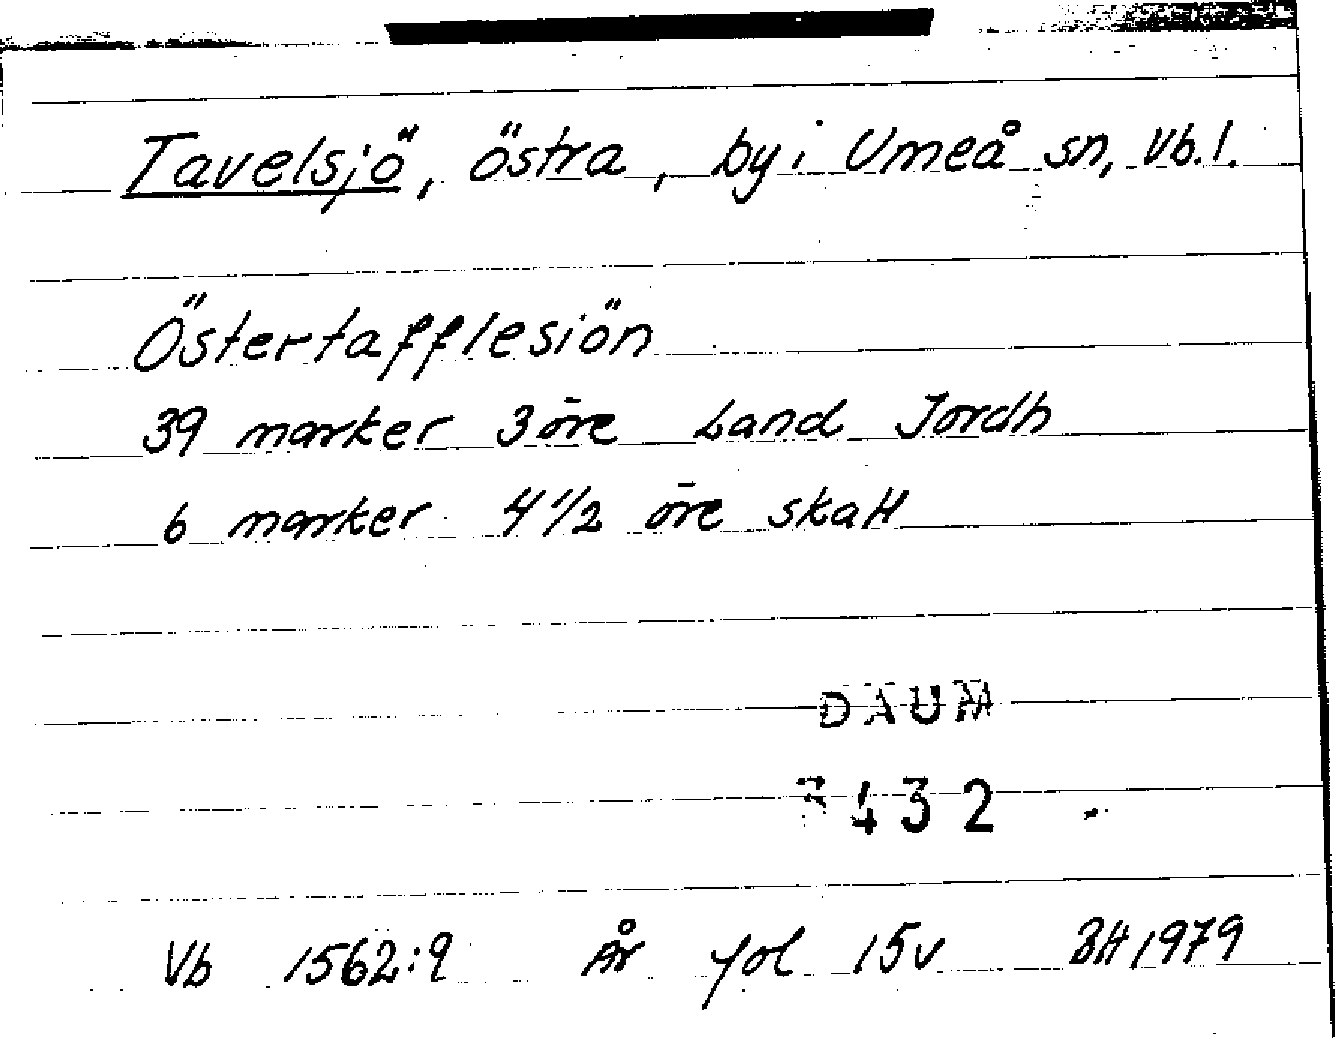 Tavelsjö, östra, by i Umeå sn, Vb. l.
Östertafflesiön
39 marker 3 öre Land Jordh
6 marker 4 1/2 öre skatt
DAUM
3432
Vb 1562:9 År fol 15v BH 1979